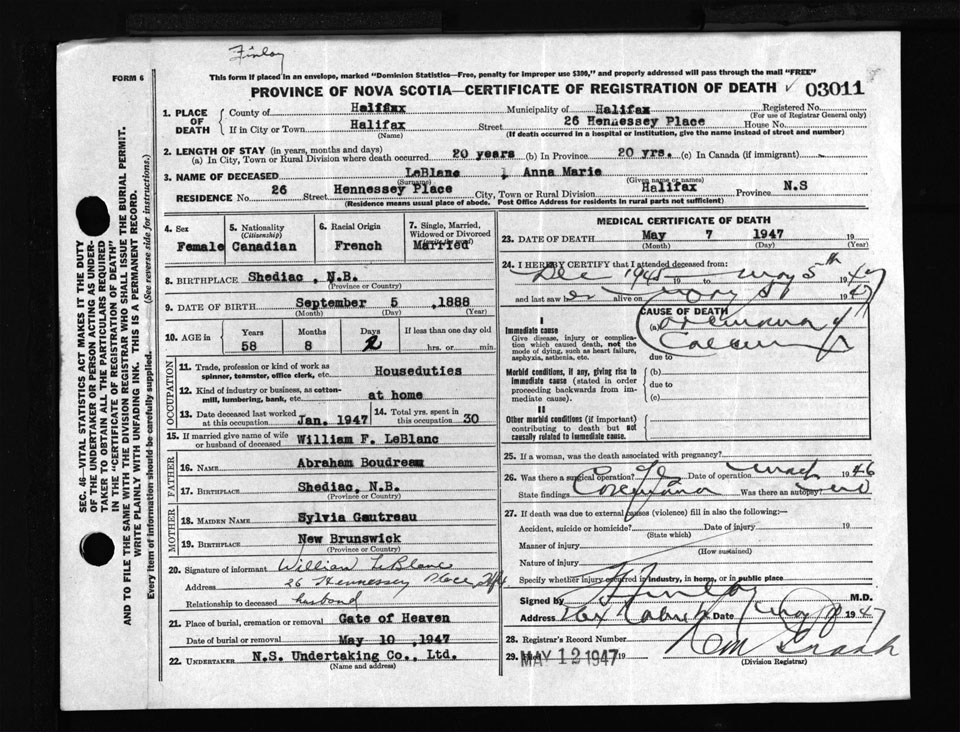 Finlay
FORM 6
This form if placed in an envelope, marked "Dominion Statistics—Free, penalty for improper use $300," and properly addressed will pass through the mail "FREE"
PROVINCE OF NOVA SCOTIA—CERTIFICATE OF REGISTRATION OF DEATH 03011
SEC. 46—VITAL STATISTICS ACT MAKES IT THE DUTY
OF THE UNDERTAKER OR PERSON ACTING AS UNDER-
TAKER TO OBTAIN ALL THE PARTICULARS REQUIRED
IN THE "CERTIFICATE OF REGISTRATION OF DEATH"
AND TO FILE THE SAME WITH THE DIVISION REGISTRAR WHO SHALL ISSUE THE BURIAL PERMIT.
WRITE PLAINLY WITH UNFADING INK. THIS IS A PERMANENT RECORD.
Every item of information should be carefully supplied. (See reverse side for instructions.)
1. PLACE OF DEATH
County of Halifax Municipality of Halifax Registered No.
(For use of Registrar General only)
If in City or Town Halifax Street 26 Hennessey Place House No.
(Name) (If death occurred in a hospital or institution, give the name instead of street and number)
2. LENGTH OF STAY (in years, months and days)
(a) In City, Town or Rural Division where death occurred 20 years (b) In Province 20 yrs. (c) In Canada (if immigrant)
3. NAME OF DECEASED LeBlanc Anna Marie
(Surname) (Given name or names)
RESIDENCE No. 26 Street Hennessey Place City, Town or Rural Division Halifax Province N.S
(Residence means usual place of abode. Post Office Address for residents in rural parts not sufficient)
4. Sex
Female
5. Nationality
(Citizenship)
Canadian
6. Racial Origin
French
7. Single, Married,
Widowed or Divorced
(write the word)
Married
8. BIRTHPLACE Shediac , N.B.
(Province or Country)
9. DATE OF BIRTH September 5 ,1888
(Month) (Day) (Year)
10. AGE in
Years Months Days If less than one day old
58 8 2 hrs. or min.
OCCUPATION
11. Trade, profession or kind of work as
spinner, teamster, office clerk, etc. Houseduties
12. Kind of industry or business, as cotton-
mill, lumbering, bank, etc. at home
13. Date deceased last worked
at this occupation Jan. 1947
14. Total yrs. spent in
this occupation 30
15. If married give name of wife
or husband of deceased William F. LeBlanc
FATHER
16. NAME Abraham Boudreau
17. BIRTHPLACE Shediac, N.B.
(Province or Country)
MOTHER
18. MAIDEN NAME Sylvia Gautreau
19. BIRTHPLACE New Brunswick
(Province or Country)
20. Signature of informant William LeBlanc
Address 26 Hennessey Place Hfx
Relationship to deceased husband
21. Place of burial, cremation or removal Gate of Heaven
Date of burial or removal May 10 ,1947
22. UNDERTAKER N.S. Undertaking Co., Ltd.
(Name and address)
MEDICAL CERTIFICATE OF DEATH
23. DATE OF DEATH May 7 1947 19
(Month) (Day) (Year)
24. I HEREBY CERTIFY that I attended deceased from:
Dec 1945 19 to May 5th 1947
and last saw her alive on May 5th 1947
CAUSE OF DEATH
I
Immediate cause
Give disease, injury or complica-
tion which caused death, not the
mode of dying, such as heart failure,
asphyxia, asthenia, etc.
(a) Carcinoma of
due to
Morbid conditions, if any, giving rise to
immediate cause (stated in order
proceeding backwards from im-
mediate cause).
(b)
due to
(c)
II
Other morbid conditions (if important)
contributing to death but not
causally related to immediate cause.
25. If a woman, was the death associated with pregnancy?
26. Was there a surgical operation? Date of operation March 1946
State findings Carcinoma Was there an autopsy? no
27. If death was due to external causes (violence) fill in also the following:—
Accident, suicide or homicide? Date of injury 19
(State which)
Manner of injury
(How sustained)
Nature of injury
Specify whether injury occurred in industry, in home, or in public place
Signed by Finlay M.D.
Address Date May 1947
28. Registrar's Record Number
29. MAY 12 1947 19
(Division Registrar)